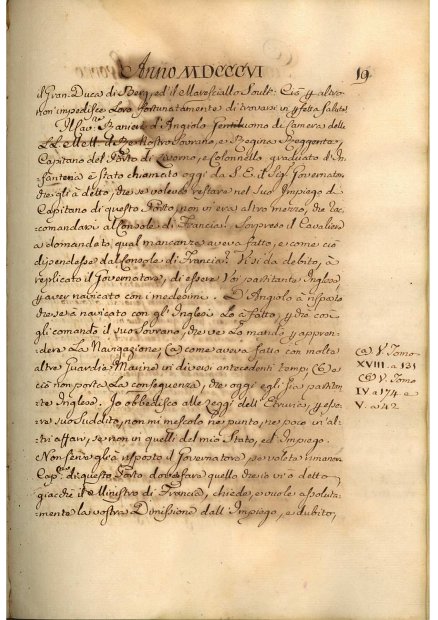 Anno MDCCCVI
19
il Gran-Duca di Berg, ed il Maresciallo Soult: Ciò p altro
non impedisce Loro fortunatamente di trovarsi in pfetta salute.
Il Cav. Raniere d'Angiolo Gentiluomo di Camera delle
LL. MM. il Re Nostro Sovrano, e Regina Reggente,
Capitano del Porto di Livorno, e Colonnello graduato d'In-
fanteria è stato chiamato oggi da S. E. il Sig. Governatore
che gli à detto, che se voleva restare nel suo Impiego di
Capitano di questo Porto, non vi era altro mezzo, che rac-
comandarsi al Console di Francia. Sorpreso il Cavaliere
à domandato, qual mancanza aveva fatto, e come ciò
dipendesse dal Console di Francia? Vi si dà debito, à
replicato il Governatore, di essere Voi partitante Inglese
p aver navigato con i medesimi. D'Angiolo à risposto
che se à navigato con gl'Inglesi Lo à fatto, p che così
gli comandò il suo Sovrano, che ve Lo mandò p appren-
dere La Navigazione, (a) come aveva fatto con molte
altre Guardie Marine in diversi antecedenti tempi (b) e
ciò non porta La conseguenza, che oggi egli sia partitan-
te Inglese. Io obbedisco alle Leggi dell'Etruria, p esse-
re suo suddito, non mi mescolo nè punto, nè poco in al-
tri affari, se non in quelli del mio Stato, ed Impiego.
Non serve gli à risposto il Governatore, se volete rimaner
Cap.no di questo Porto dovete fare quello che io vi ò detto,
giacchè il Ministro di Francia, chiede, e vuole assoluta-
mente la vostra Dimissione dall'Impiego, e dubito,
(a) V. Tomo
XVIII. a 121
(b) V. Tomo
IV a 174 e
V. a 42